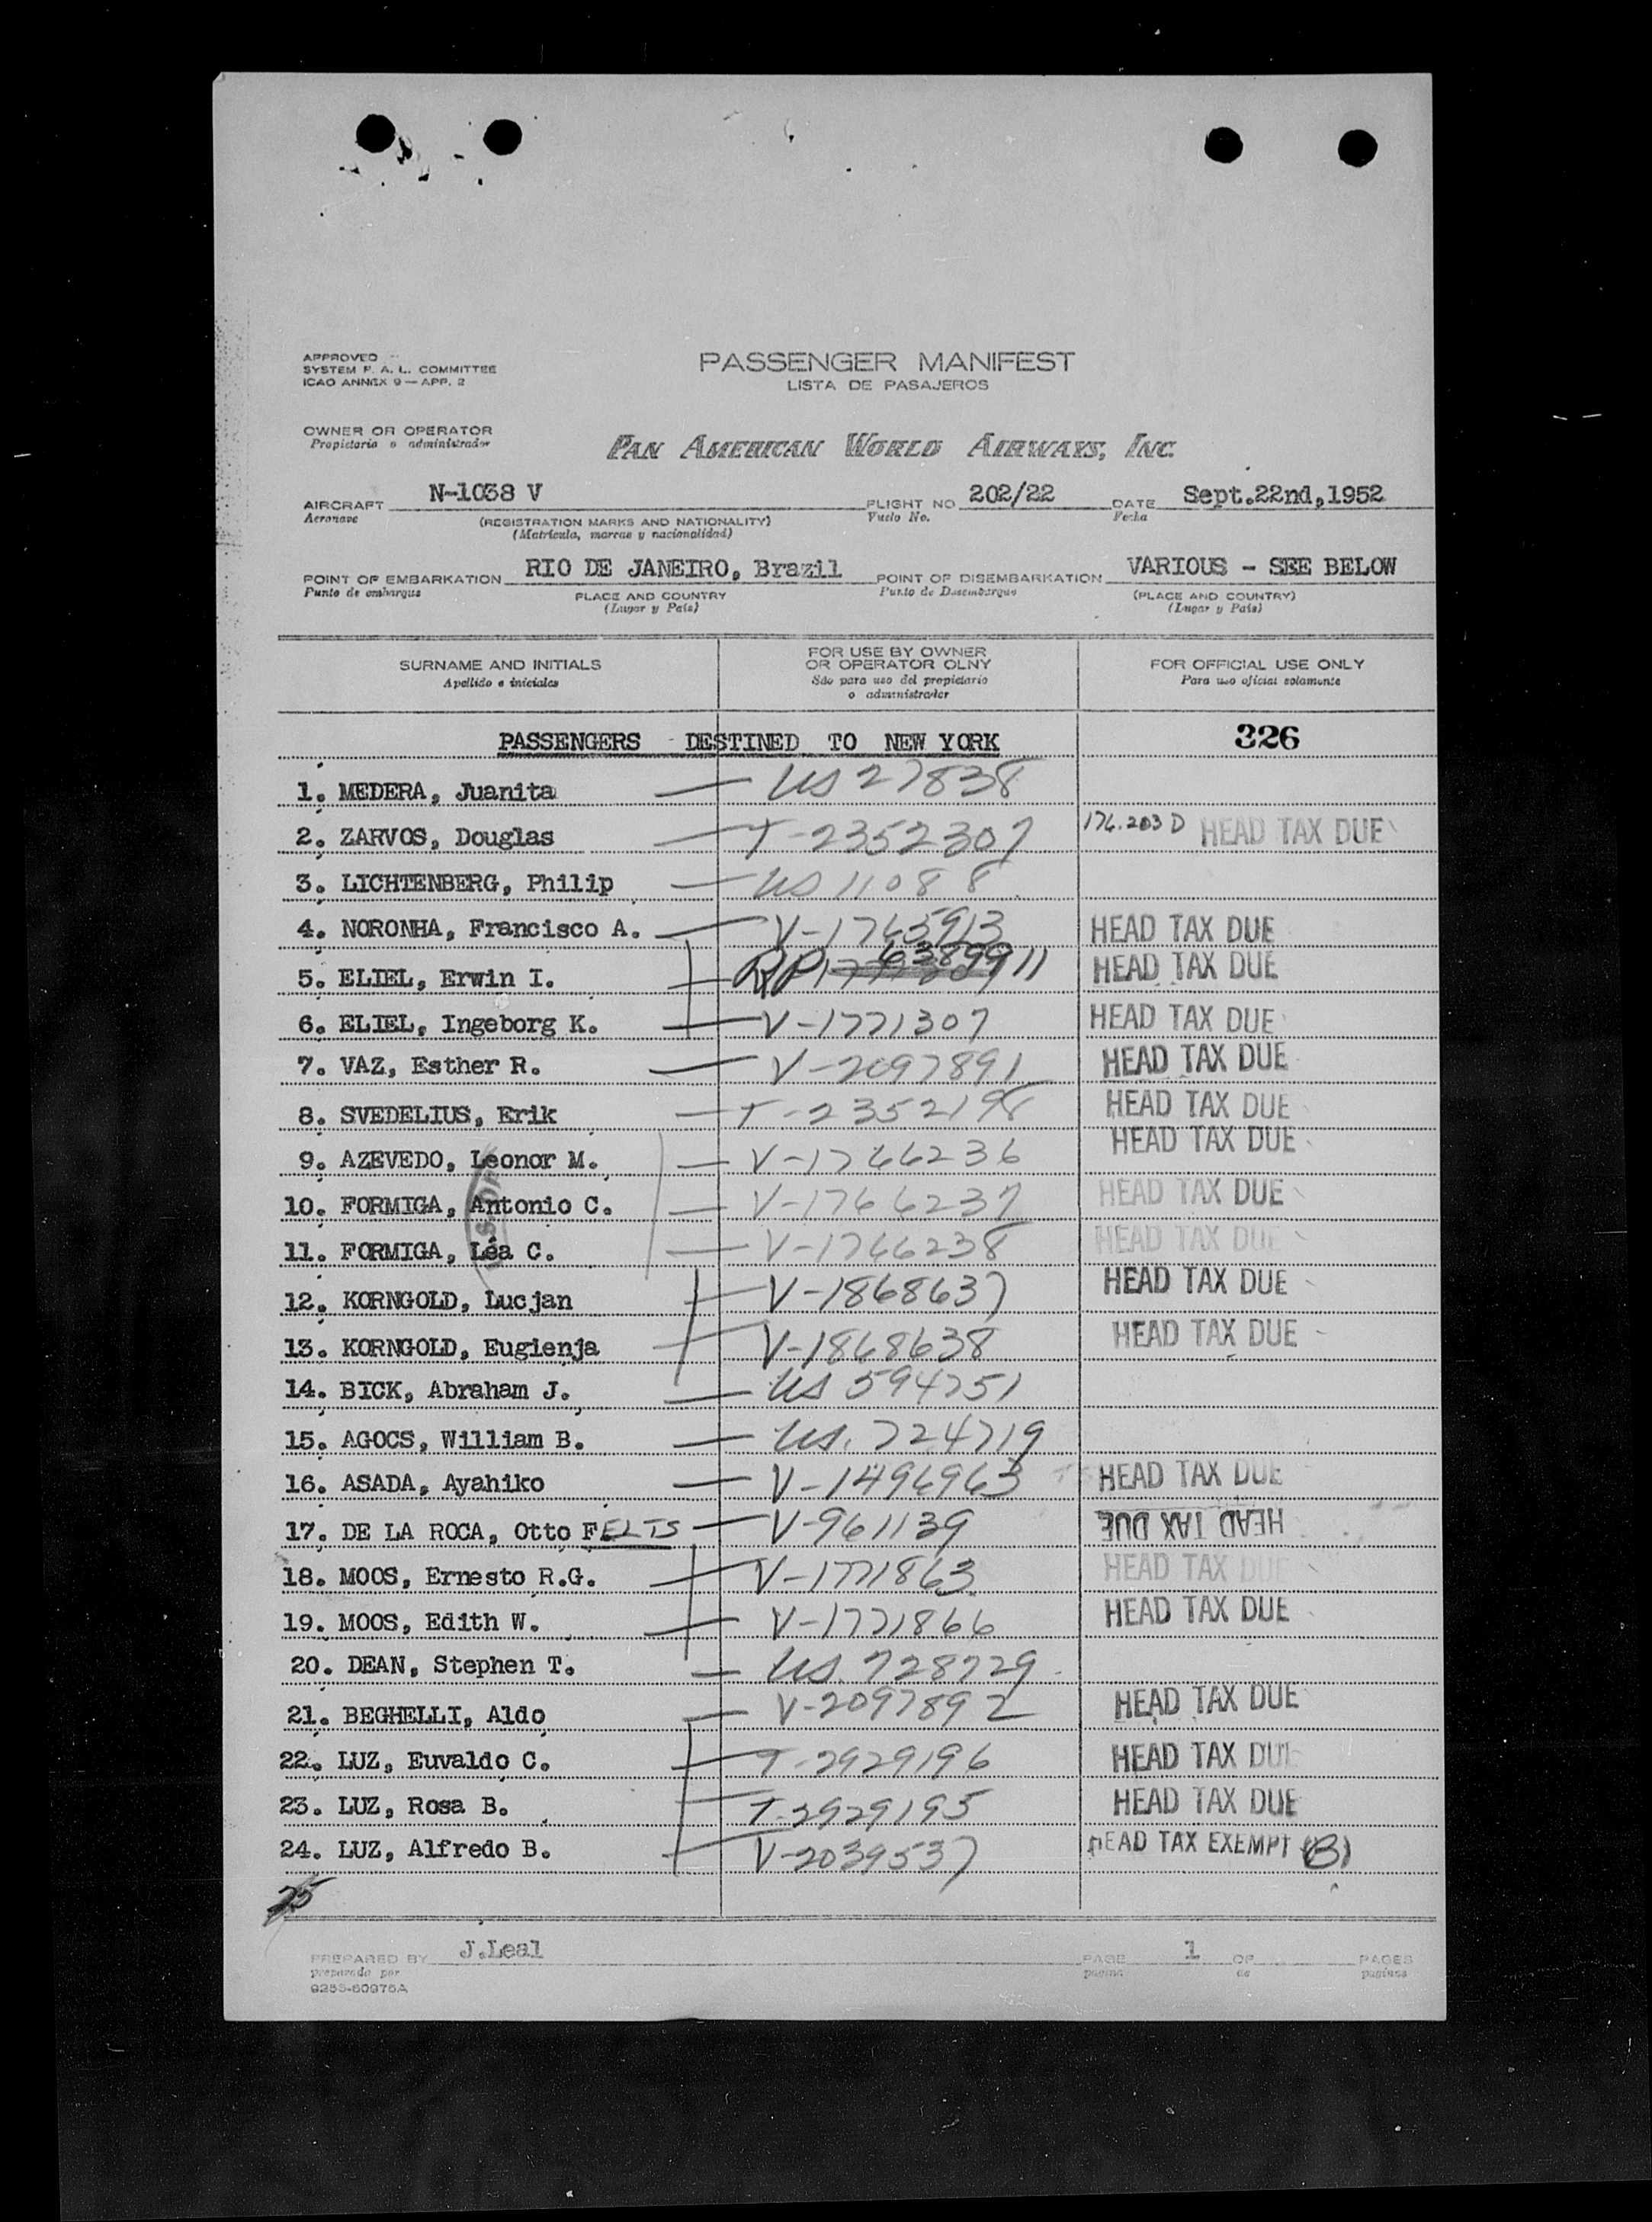 APPROVED
SYSTEM F. A. L. COMMITTEE
ICAO ANNEX 9 — APP. 2
PASSENGER MANIFEST
LISTA DE PASAJEROS
OWNER OR OPERATOR
Propietario o administrador
PAN AMERICAN WORLD AIRWAYS, INC.
AIRCRAFT N-1038 V FLIGHT NO 202/22 DATE Sept.22nd,1952
Aeronave (REGISTRATION MARKS AND NATIONALITY) Vuelo No. Fecha
(Matrícula, marcas y nacionalidad)
POINT OF EMBARKATION RIO DE JANEIRO, Brazil POINT OF DISEMBARKATION VARIOUS - SEE BELOW
Punto de embarque PLACE AND COUNTRY Punto de Desembarque (PLACE AND COUNTRY)
(Lugar y País) (Lugar y País)
SURNAME AND INITIALS FOR USE BY OWNER OR OPERATOR OLNY FOR OFFICIAL USE ONLY
Apellido e iniciales Sdo para uso del propietario o administrador Para uso oficial solamente
PASSENGERS DESTINED TO NEW YORK 326
1. MEDERA, Juanita — US 27838
2. ZARVOS, Douglas — T-2352307 176.203 D HEAD TAX DUE
3. LICHTENBERG, Philip — US 11088
4. NORONHA, Francisco A. — V-1765913 HEAD TAX DUE
5. ELIEL, Erwin I. — HEAD TAX DUE
6. ELIEL, Ingeborg K. — V-1771307 HEAD TAX DUE
7. VAZ, Esther R. — V-2097891 HEAD TAX DUE
8. SVEDELIUS, Erik — T-2352198 HEAD TAX DUE
9. AZEVEDO, Leonor M. — V-1766236 HEAD TAX DUE
10. FORMIGA, Antonio C. — V-1766237 HEAD TAX DUE
11. FORMIGA, Léa C. — V-1766238 HEAD TAX DUE
12. KORNGOLD, Lucjan — V-1868637 HEAD TAX DUE
13. KORNGOLD, Eugienja — V-1868638 HEAD TAX DUE
14. BICK, Abraham J. — US 594751
15. AGOCS, William B. — US. 724719
16. ASADA, Ayahiko — V-1496963 HEAD TAX DUE
17. DE LA ROCA, Otto FELTS — V-961139 HEAD TAX DUE
18. MOOS, Ernesto R.G. — V-1771863 HEAD TAX DUE
19. MOOS, Edith W. — V-1771866 HEAD TAX DUE
20. DEAN, Stephen T. — US. 728729
21. BEGHELLI, Aldo — V-2097892 HEAD TAX DUE
22. LUZ, Euvaldo C. — T-2929196 HEAD TAX DUE
23. LUZ, Rosa B. — T-2929195 HEAD TAX DUE
24. LUZ, Alfredo B. — V-2039537 HEAD TAX EXEMPT (B)
25
PREPARED BY J.Leal PAGE 1 OF PAGES
preparado por pagina de paginas
9255-60975A